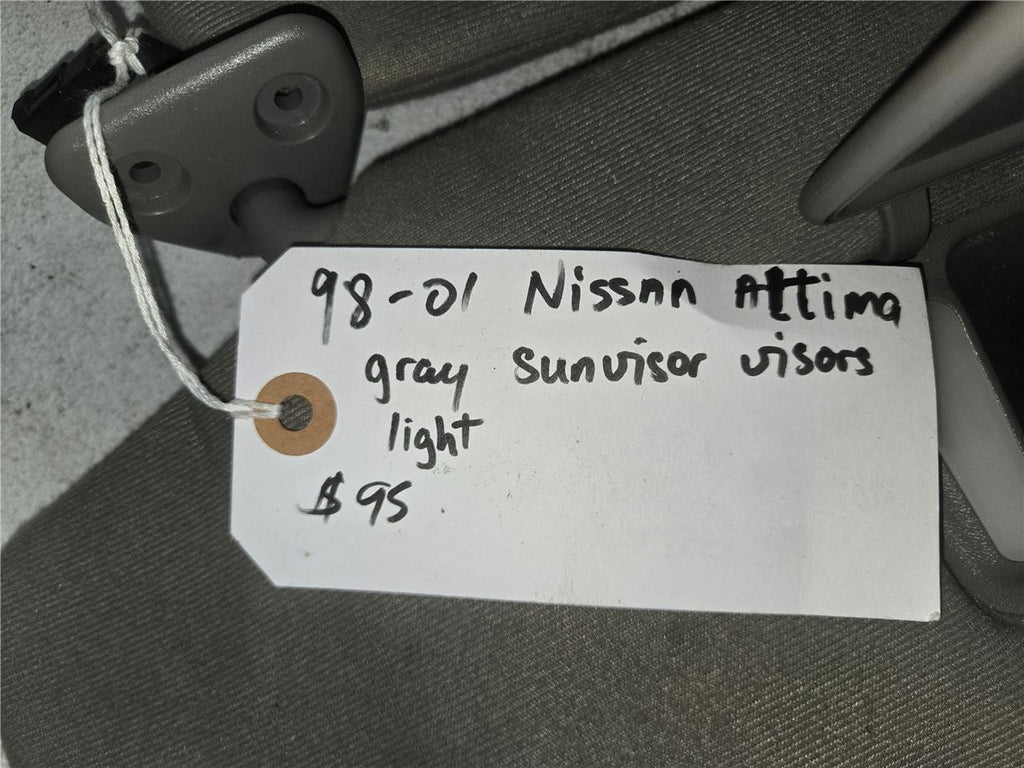 98-01 Nissan Altima
gray sunvisor visors
light
$95